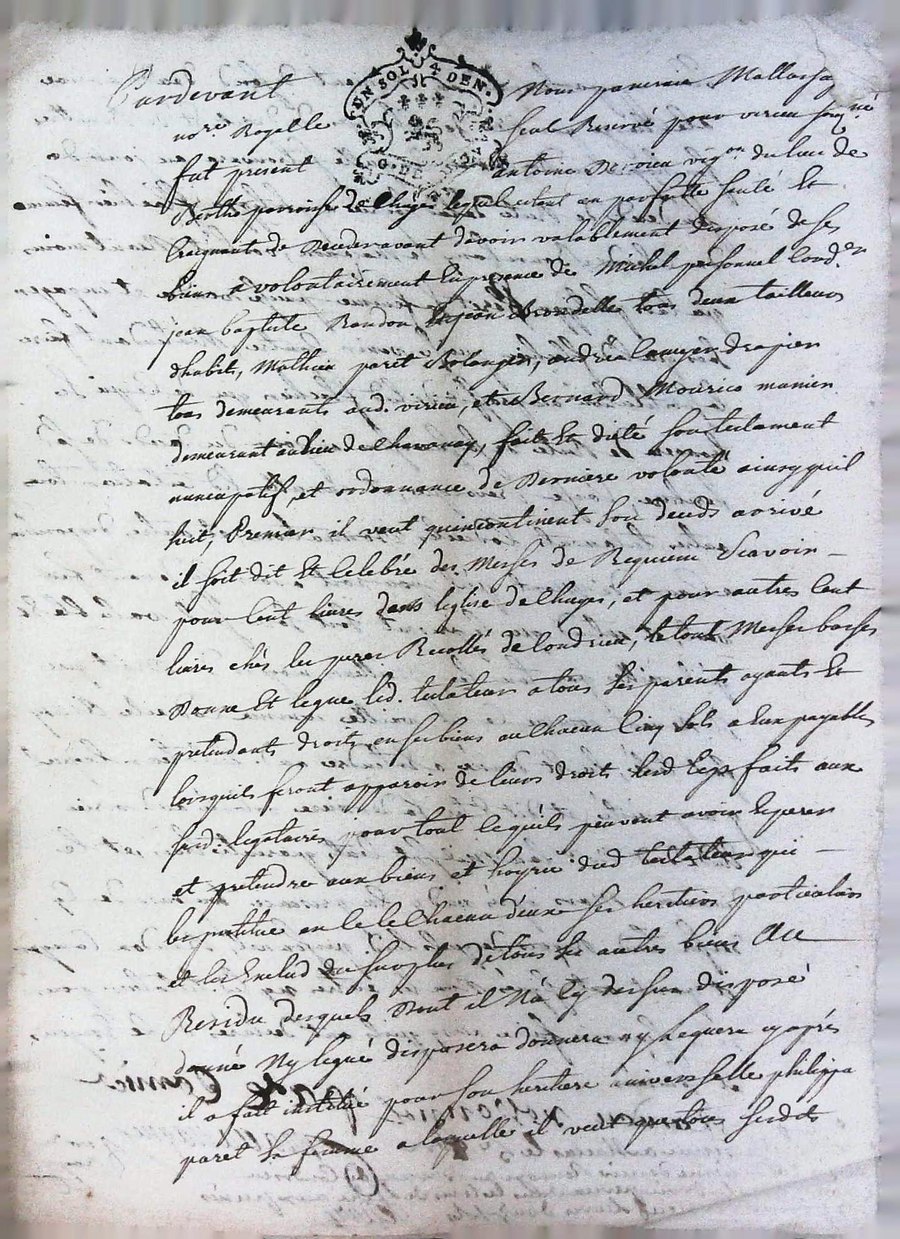 EN SOL 4 DEN.
G. DE
Pardevant Nous
nore Royelle Seul Reservé pour virieu sousné
fut present antoine vignon du lieu de
Berthe parroisse de Chuyes lequel etant en parfaitte santé Et
Craignant de Deceder avant davoir valablement disposé de ses
biens a volontairement En presence de Michel personnel Cord.er
jean baptiste Bandon, Enjean tous deux tailleurs
dhabits, Mathieu paret Bolanger, andré drapier
tous demeurants aud. virieu, et Bernard Mourico manier
demeurant au lieu de Chavanay, fait Et dicté son testament
nuncupatif, et ordonnance de Derniere volonté ainsy quil
suit, Premier il veut quincontinent son deceds arrivé
il soit dit Et Celebré des Messes de Requiem Scavoir –
pour Cent livres dans leglise de Chuyes, et pour autres Cent
livres chés les peres Recollés de Condrieu, le tout Messes basses
Donne Et legue led. testateur a tous ses parents ayants Et
pretendants droits en ses biens au Chacun Cinq Sols a Eux payables
lorsquils feront apparoir de leurs droits lesd legs faits aux
susd. legataires pour tout ce quils peuvent avoir Esperer
et pretendre aux biens et hoyrie dud testateur qui –
les institue en ce le Chacun deux ses heritiers particuliers
et les Exclud du surplus de tous ses autres biens Au
Residu desquels Dont il Na Cy dessus disposé
donné Ny legué disposera donnera ny leguera cy aprés
il a fait institué pour son heritiere universelle philippa
paret Sa femme a laquelle il veut que tous sesdits